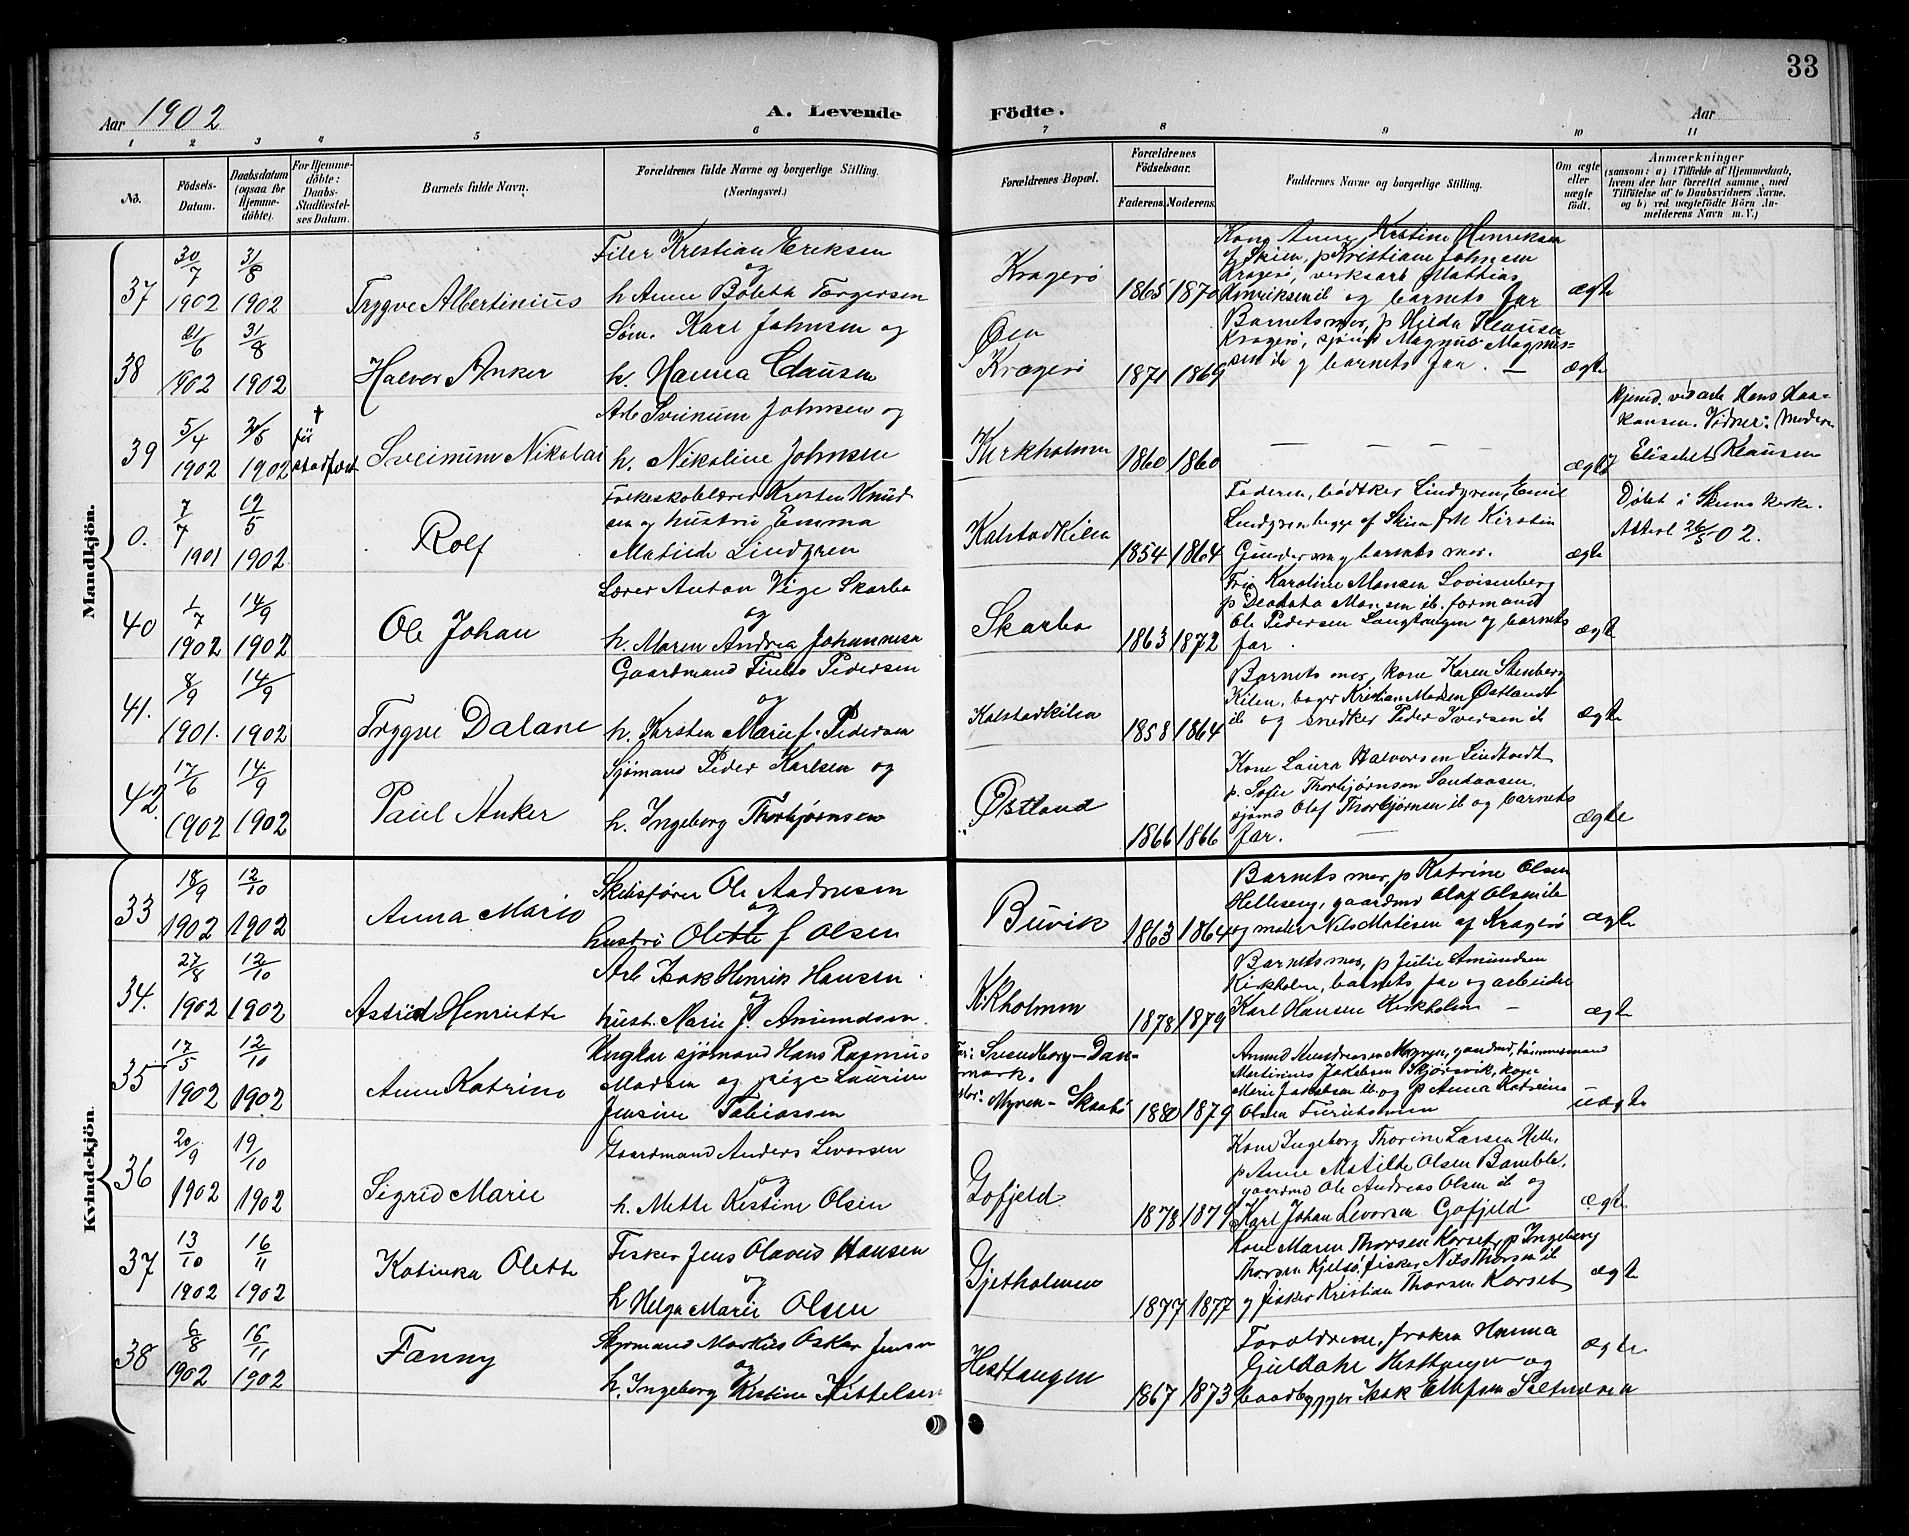 33
Aar 1902
A. Levende
Födte.
Aar
1 2 3 4 5 6 7 8 9 10 11
No.
Födsels-Datum.
Daabsdatum (ogsaa for Hjemme-döbte).
For Hjemme-döbte: Daabs-Stadfæstel-ses Datum.
Barnets fulde Navn.
Forældrenes fulde Navne og borgerlige Stilling. (Næringsvei.)
Forældrenes Bopæl.
Forældrenes Födselsaar.
Faderens. Moderens.
Faddernes Navne og borgerlige Stilling.
Om ægte eller uægte födt.
Anmærkninger
(saasom: a) i Tilfælde af Hjemmedaab, hvem der har forrettet samme, med Tilföielse af to Daabsvidners Navne. og b) ved uægtefödte Börn An-melderens Navn m. V.)
Mandkjön.
37 30/7 1902 31/8 1902
Trygve Albertinius
Filer Kristian Eriksen
og
h. Anne Boletta Torgersen
Kragerø
1865 1870
Kone Anne Kristine Henriksen
af Skien, p Kristiane Johnsen
Kragerø, verksarb Mathias
Henriksen ib og barnets far
ægte
38 21/6 1902 31/8 1902
Halvor Anker
Søm. Karl Johnsen og
h. Hanna Clausen
Øen
Kragerø
1871 1869
Barnets mor, p Hilda Klausen
Kragerø, sjømd Magnus Magnus-
sen ib og barnets far.
ægte
39 5/4 1902 1902
† før stadfæst
Sveinum Nikolai
Arb Sveinum Johnsen og
h. Nikoline Johnsen
Kirkholmen
1860 1860
— — — —
ægte
Hjemd. ved arb Hans Haa-
kensen. Vidner: Moderen
og Elisabet Klausen
0. 7/7 1901 12/5 1902
Rolf
Folkeskolelærer Kresten Knud
sen og hustru Emma
Matilde Lindgren
Kalstadkilen
1854 1864
Faderen, bødtker Lindgren, Emil
Lindgren begge af Skien frk Kirstin
Gundersen og barnets mor.
ægte
Døbt i Skiens kirke.
Attest 26/5 02.
40 1/7 1902 14/9 1902
Ole Johan
Lærer Anton Vige Skarbo
og
h. Maren Andrea Johannesen
Skarbo
1863 1872
Fru Karoline Monsen Lovisenberg
p Deodata Monsen ib. formand
Ole Pedersen Langtangen og barnets
far.
ægte
41. 8/9 1901. 14/9 1902
Trygve Dalane
Gaardmand Pedersen
og
h. Karsten Marie f. Pedersen
Kalstadkilen
1858 1864
Barnets mor, kone Karen Stenberg
Kilen, bager Kristian Madsen Østlandt
ib og snedker Peder Iversen ib
ægte
42. 17/6 1902 14/9 1902
Paul Anker
Sjømand Peder Karlsen og
h. Ingeborg Thorbjørnsen
Østland
1866 1866
Kone Laura Halvorsen Lindtvedt
p. Sofie Thorbjørnsen Sandaasen.
sjømd Olaf Thorbjørnsen ib og barnets
far.
ægte
Kvindekjön.
33 18/9 1902 12/10 1902
Anna Marie
Skibsfører Ole Andresen
og
hustru Olette f Olsen
Buvik
1863 1864
Barnets mor, p Katrine Olsen
Helleberg, gaardmd Olaf Olsen ib
og maler Nils Matisen af Kragerø
ægte
34. 27/8 1902 12/10 1902
Astrid Henriette
Arb Isak Henrik Hansen
og
hust. Marie J. Amundsen
Kirkholmen
1878 1879
Barnets mor, p Julie Amundsen
Kirkholm, barnets far og arbeider
Karl Hansen Kirkholm —
ægte
35 17/5 1902 12/10 1902
Anne Katrine
Ungkar sjømand Hans Rasmus
Madsen og pige Laurine
Jensine Tobiassen
Far: Svendborg—Dan-
mark.
Mor: Myren—Skaabø
1880 1879
Amund Andreasen Myren, gaardmd, tømmermand
Martinius Jakobsen Skjørsvik, kone
Marie Jakobsen ib. og p Anna Katrine
Olsen Furuholmen
uægte
36 20/9 1902 19/10 1902
Sigrid Marie
Gaardmand Anders Levorsen
og
h. Mette Kristine Olsen
Gofjeld
1878 1879
Kone Ingeborg Thorine Larsen Helle,
p Anne Matilde Olsen Bamble,
gaardmd Ole Andreas Olsen ib og
Karl Johan Levorsen Gofjeld
ægte
37 13/10 1902 16/11 1902
Katinka Olette
Fisker Jens Olavus Hansen
og
h Helga Marie Olsen
Gjetholmen
1877 1877
Kone Maren Thorsen Korset, p Ingeborg
Thorsen Kjelsø, fisker Nils Thorsen ib
og fisker Kristian Thorsen Korset
ægte
38 6/8 1902 16/11 1902
Fanny
Styrmand Markus Oskar Jensen
og
h. Ingeborg Kristine Kittelsen
Hesttangen
1867 1873
Forældrene, frøken Hanna
Guldahl Hesttangen og
baadbygger Isak Ellefsen
ægte